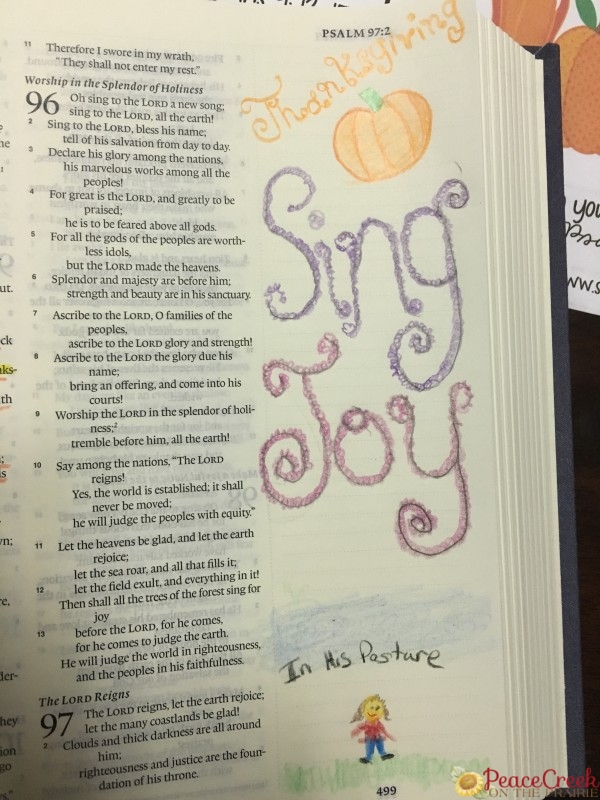 PSALM 97:2
11 Therefore I swore in my wrath,
"They shall not enter my rest."
Worship in the Splendor of Holiness
96 Oh sing to the LORD a new song;
sing to the LORD, all the earth!
2 Sing to the LORD, bless his name;
tell of his salvation from day to day.
3 Declare his glory among the nations,
his marvelous works among all the
peoples!
4 For great is the LORD, and greatly to be
praised;
he is to be feared above all gods.
5 For all the gods of the peoples are worth-
less idols,
but the LORD made the heavens.
6 Splendor and majesty are before him;
strength and beauty are in his sanctuary.
7 Ascribe to the LORD, O families of the
peoples,
ascribe to the LORD glory and strength!
8 Ascribe to the LORD the glory due his
name;
bring an offering, and come into his
courts!
9 Worship the LORD in the splendor of holi-
ness;2
tremble before him, all the earth!
10 Say among the nations, "The LORD
reigns!
Yes, the world is established; it shall
never be moved;
he will judge the peoples with equity."
11 Let the heavens be glad, and let the earth
rejoice;
let the sea roar, and all that fills it;
12 let the field exult, and everything in it!
Then shall all the trees of the forest sing for
joy
13 before the LORD, for he comes,
for he comes to judge the earth.
He will judge the world in righteousness,
and the peoples in his faithfulness.
The LORD Reigns
97 The LORD reigns, let the earth rejoice;
let the many coastlands be glad!
2 Clouds and thick darkness are all around
him;
righteousness and justice are the foun-
dation of his throne.
Thanksgiving
Sing
Joy
In His Pasture
499
PeaceCreek
ON THE PRAIRIE